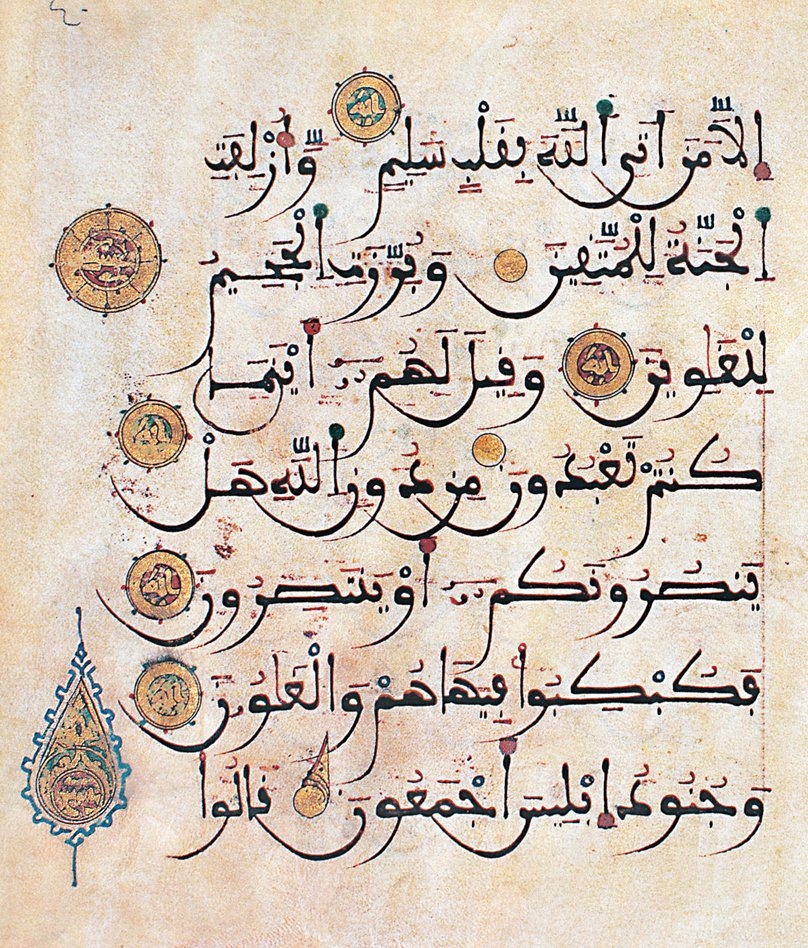 إِلَّا مَنْ أَتَى اللَّهَ بِقَلْبٍ سَلِيمٍ وَّأُزْلِفَتِ
الْجَنَّةُ لِلْمُتَّقِينَ وَبُرِّزَتِ الْجَحِيمُ
لِلْغَاوِينَ وَقِيلَ لَهُمْ أَيْنَمَا
كُنتُمْ تَعْبُدُونَ مِن دُونِ اللَّهِ هَلْ
يَنصُرُونَكُمْ أَوْ يَنتَصِرُونَ
فَكُبْكِبُوا فِيهَا هُمْ وَالْغَاوُونَ
وَجُنُودُ إِبْلِيسَ أَجْمَعُونَ قَالُوا